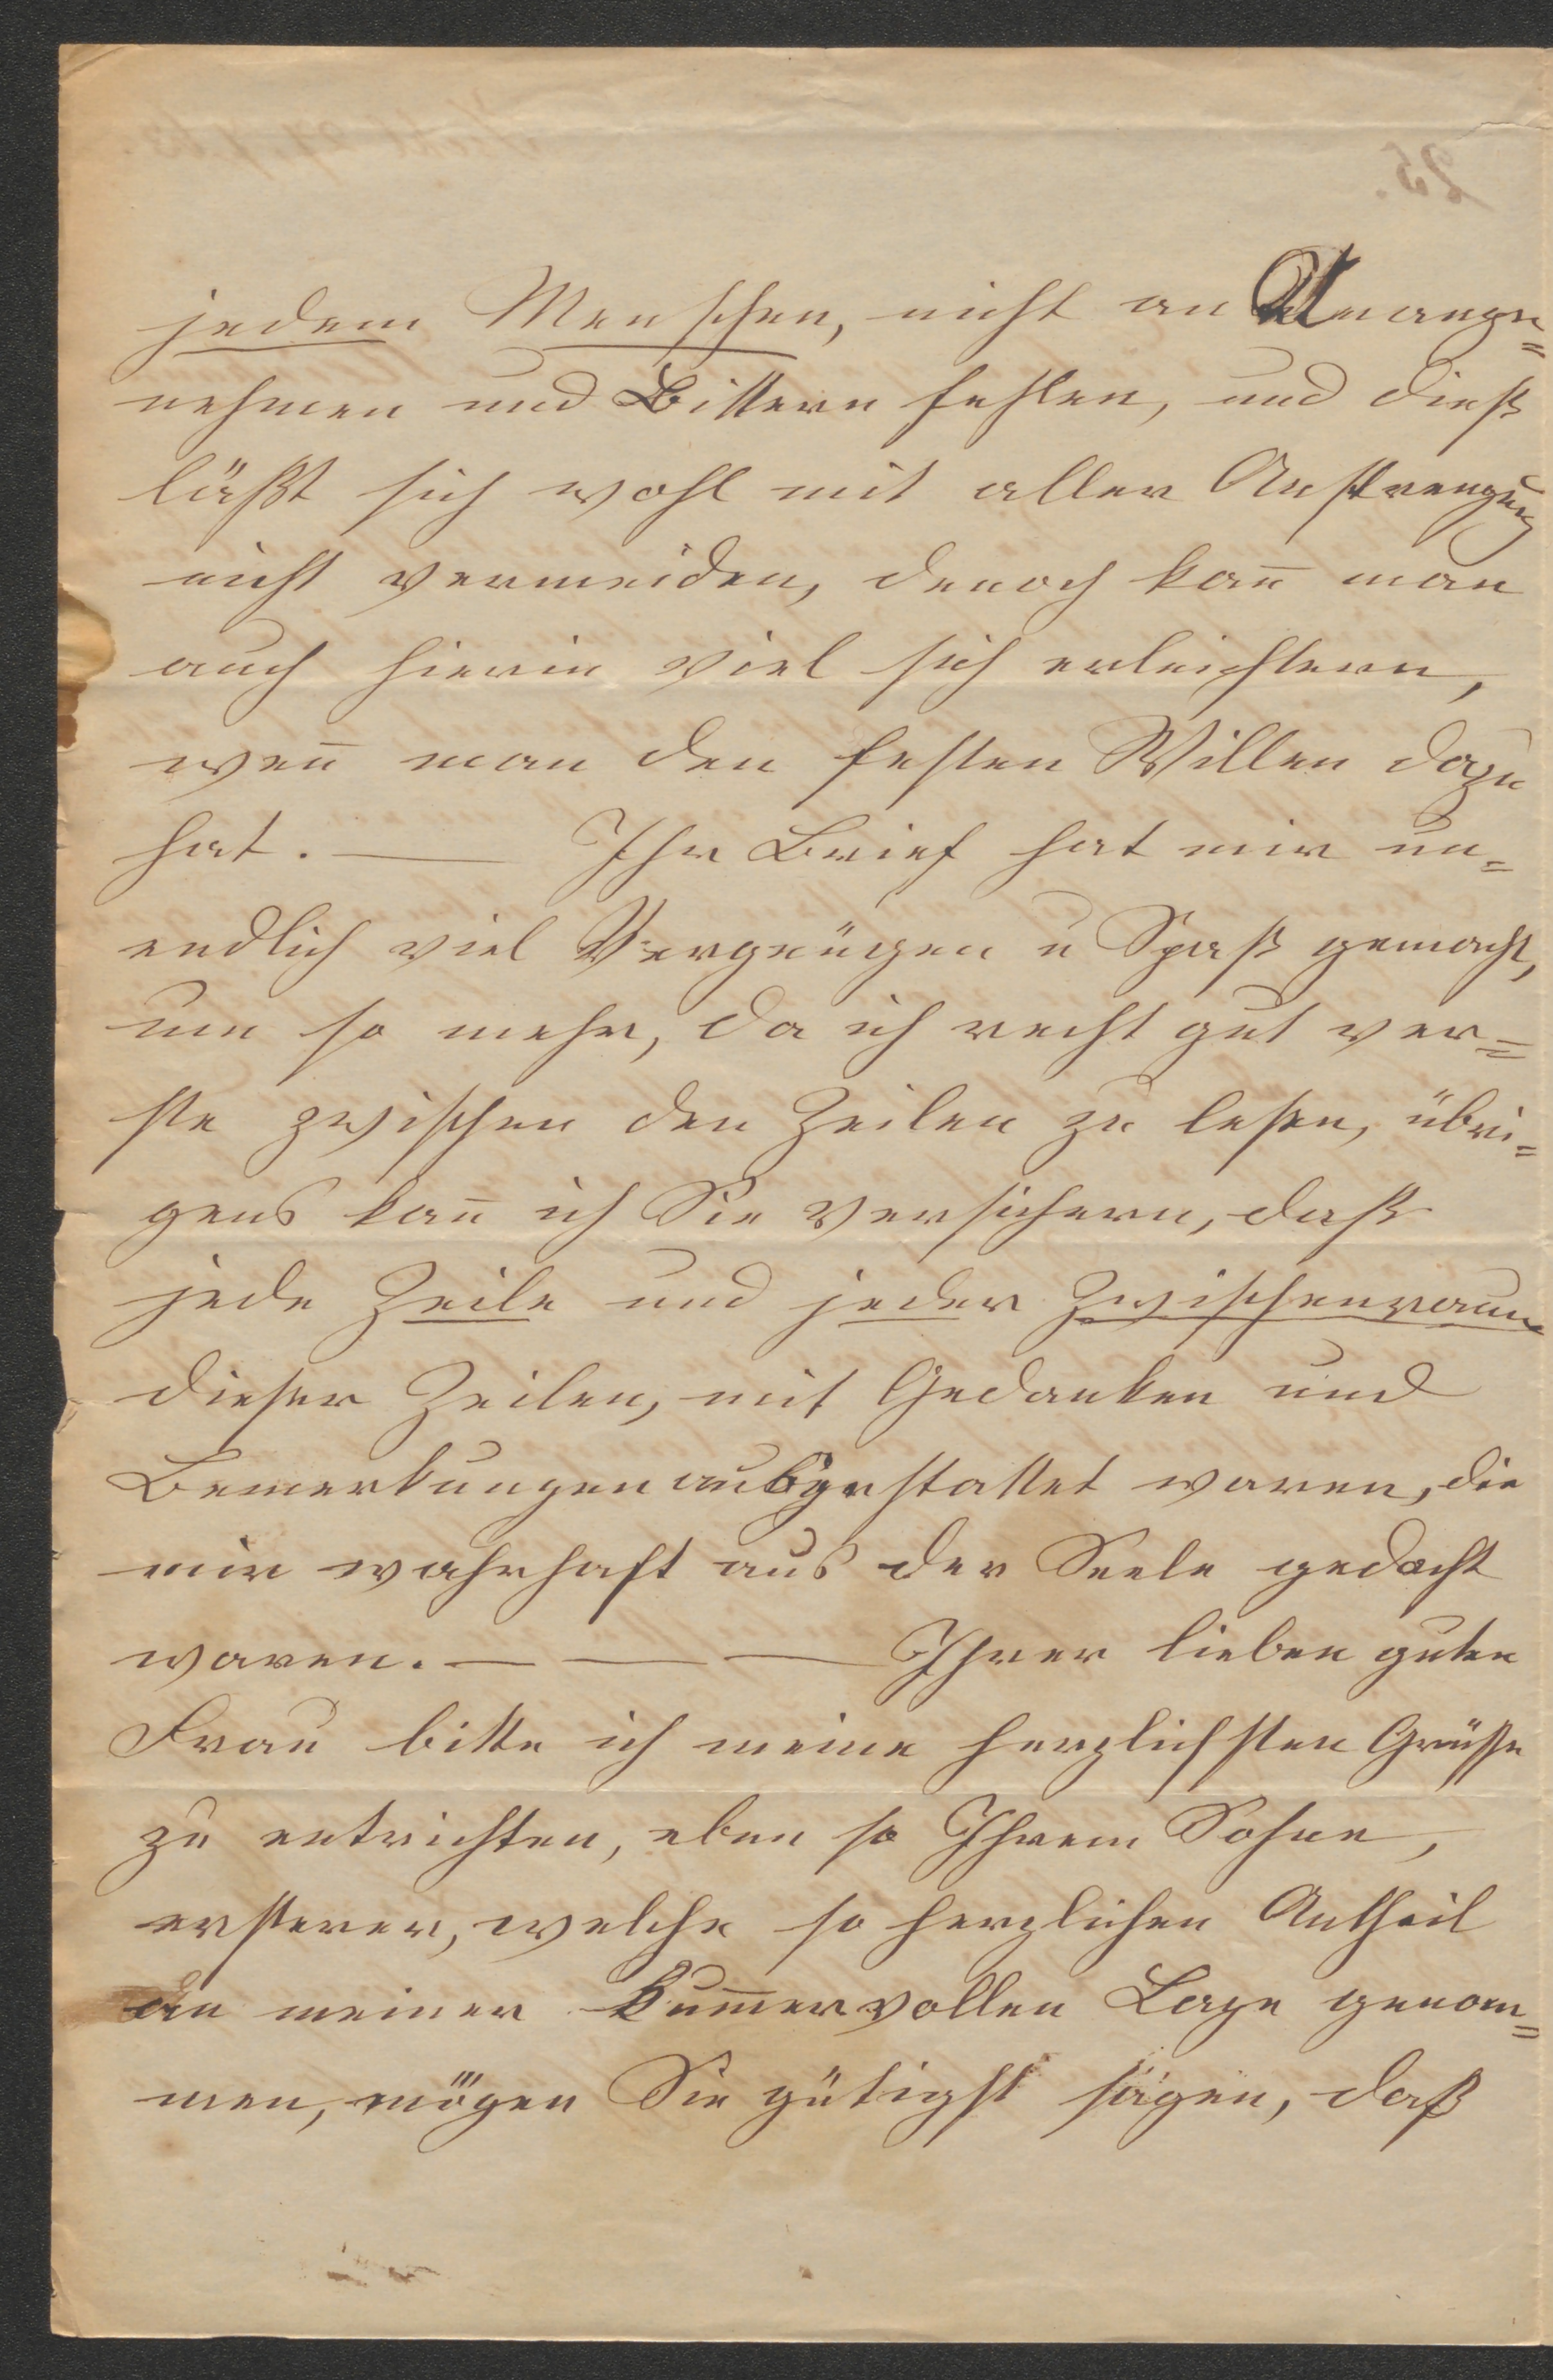 jedem Menschen, nicht an Unange=
nehmen und Bittern fehlen, und dieß
läßt sich wohl mit aller Anstrengung
nicht vermeiden, denoch kan̄ man
auch hierin viel sich erleichtern,
wen̄ man den festen Willen dazu
hat. — Ihr Brief hat mir un=
endlich viel Vergnügen u Spaß gemacht,
um so mehr, da ich recht gut ver=
ste zwischen den Zeilen zu lesen, übri=
gens kan̄ ich Sie versichern, daß
jede Zeile und jeder Zwischenraum
dieser Zeilen, mit Gedanken und
Bemerkungen ausgestattet waren, die
mir wahrhaft aus der Seele gedacht
waren. — — — Ihrer lieben guten
Frau bitte ich meine herzlichsten Grüße
zu entrichten, eben so Ihrem Sohne,
ersterer, welche so herzlichen Antheil
an meiner kum̄ervollen Lage genom=
men, mögen Sie gütigst sagen, daß